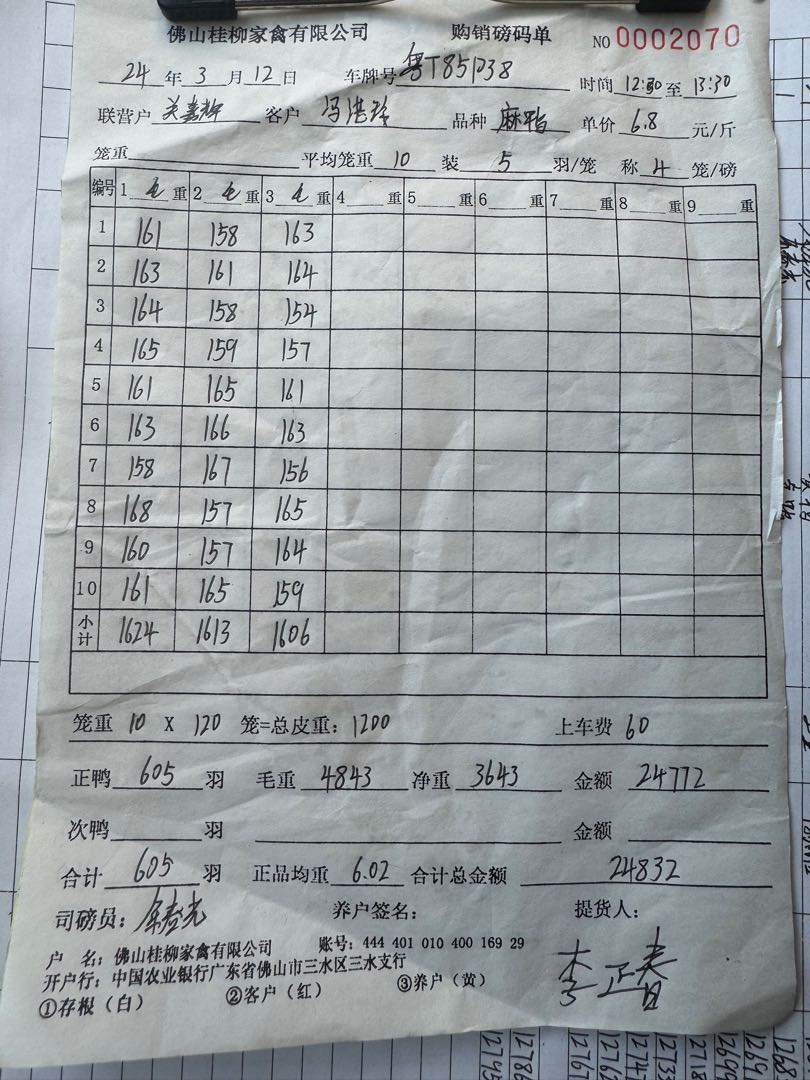 佛山桂柳家禽有限公司 购销磅码单 NO 0002070
24 年 3 月 12 日 车牌号 粤T85P38 时间 12:30 至 13:30
联营户 关嘉辉 客户 冯洪玲 品种 麻鸭 单价 6.8 元/斤
笼重 平均笼重 10 装 5 羽/笼 称 4 笼/磅
编号 1 毛 重 2 毛 重 3 毛 重 4 重 5 重 6 重 7 重 8 重 9 重
1 161 158 163
2 163 161 164
3 164 158 154
4 165 159 157
5 161 165 161
6 163 166 163
7 158 167 156
8 168 157 165
9 160 157 164
10 161 165 159
小计 1624 1613 1606
笼重 10 X 120 笼=总皮重: 1200 上车费 60
正鸭 605 羽 毛重 4843 净重 3643 金额 24772
次鸭 羽 金额
合计 605 羽 正品均重 6.02 合计总金额 24832
司磅员: 养户签名: 提货人:
李正春
户 名: 佛山桂柳家禽有限公司 账号: 444 401 010 400 169 29
开户行: 中国农业银行广东省佛山市三水区三水支行
①存根（白） ②客户（红） ③养户（黄）